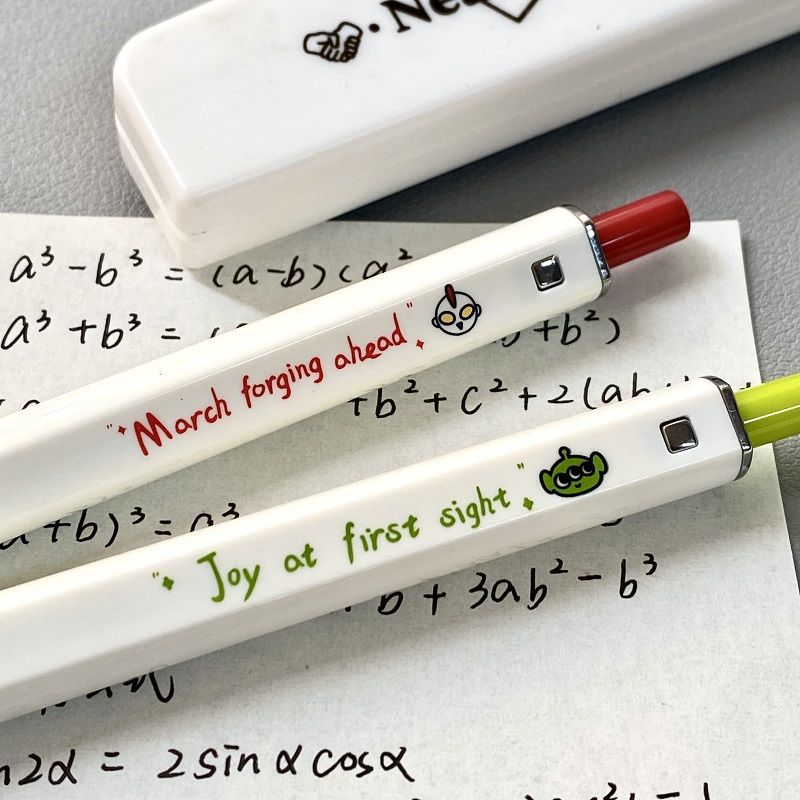 a³ - b³ = (a-b)(a²
a³ + b³ =
+b²)
"March forging ahead"
+b² + c² + 2(ab
+b)³ = a³
"Joy at first sight"
b + 3ab² - b³
2α = 2sinαcosα